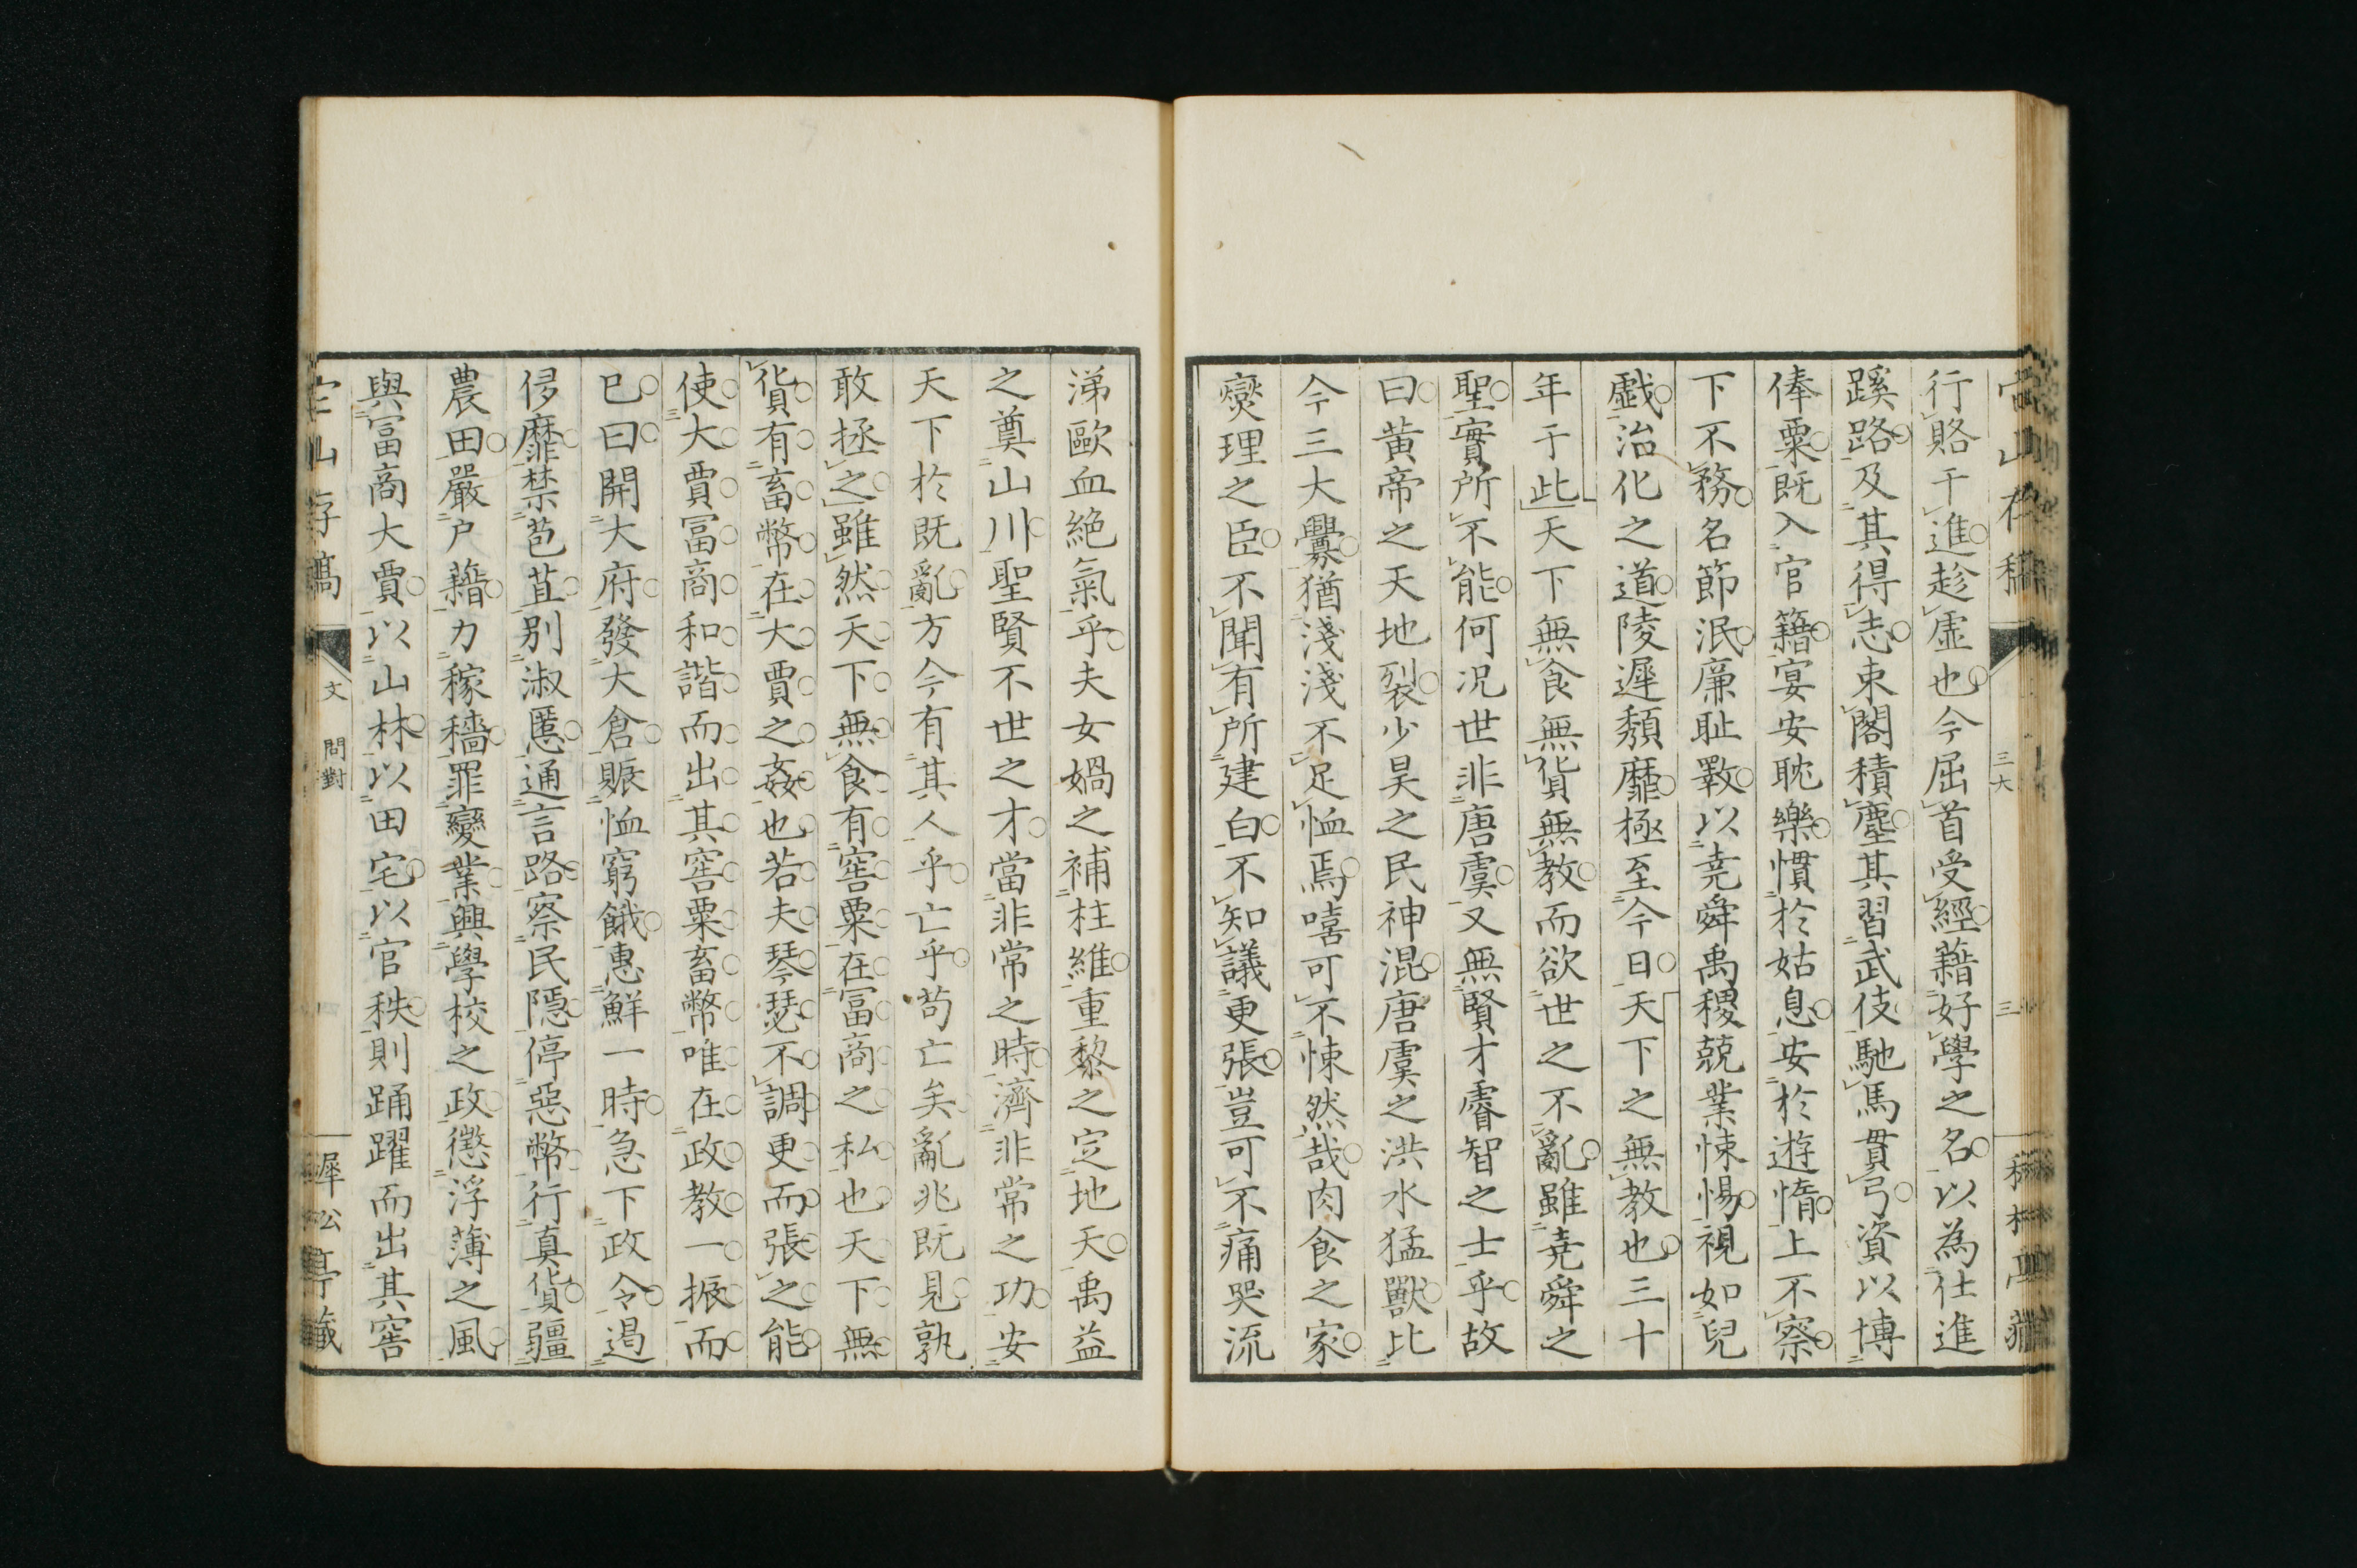 行賂干進趁虛也今屈首受經藉好學之名以為仕進
蹊路及其得志束閣積塵其習武伎馳馬貫弓資以博
俸粟既入官籍宴安耽樂慣於姑息安於遊惰上不察
下不務名節泯廉耻斁以堯舜禹稷兢業悚惕視如兒
戯治化之道陵遲頽靡極至今日天下之無教也三十
年于此天下無食無貨無教而欲世之不亂雖堯舜之
聖實所不能何况世非唐虞又無賢才睿智之士乎故
曰黃帝之天地裂少昊之民神混唐虞之洪水猛獸比
今三大釁猶淺淺不足恤焉嘻可不悚然哉肉食之家
燮理之臣不聞有所建白不知議更張豈可不痛哭流
涕歐血絕氣乎夫女媧之補柱維重黎之定地天禹益
之奠山川聖賢不世之才當非常之時濟非常之功安
天下於既亂方今有其人乎亡乎苟亡矣亂兆既見孰
敢拯之雖然天下無食有窖粟在冨商之私也天下無
貨有畜幣在大賈之姦也若夫琴瑟不調更而張之能
使大賈冨商和諧而出其窖粟畜幣唯在政教一振而
已曰開大府發大倉賑恤窮餓惠鮮一時急下政令遏
侈靡禁苞苴別淑慝通言路察民隱停惡幣行真貨疆
農田嚴戶藉力稼穡罪變業興學校之政懲浮薄之風
與冨商大賈以山林以田宅以官秩則踊躍而出其窖
文 問對